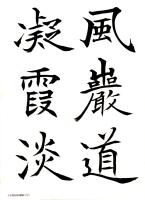 風巖道
凝霞淡